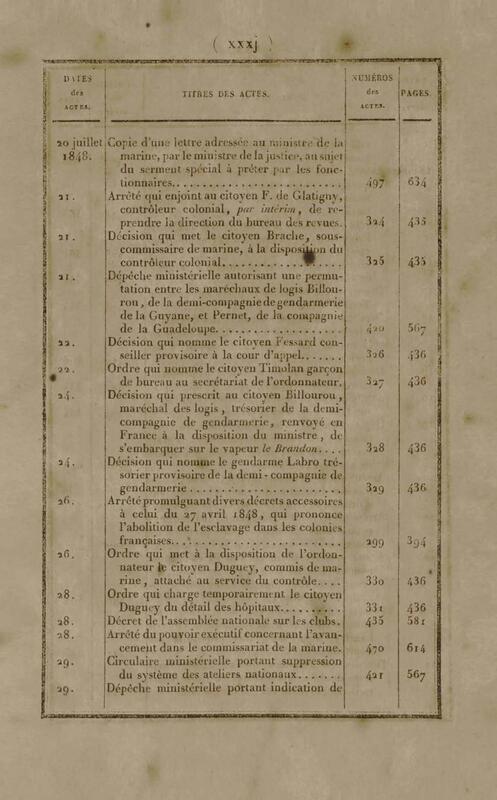 ( xxxj )
DATES des ACTES. TITRES DES ACTES. NUMÉROS des ACTES. PAGES.
20 juillet Copie d'une lettre adressée au ministre de la
1848. marine, par le ministre de la justice, au sujet
du serment spécial à prêter par les fonc-
tionnaires. 497 634
21. Arrêté qui enjoint au citoyen F. de Glatigny,
contrôleur colonial, par intérim, de re-
prendre la direction du bureau des revues. 324 435
21. Décision qui met le citoyen Brache, sous-
commissaire de marine, à la disposition du
contrôleur colonial. 325 435
21. Dépêche ministérielle autorisant une permu-
tation entre les maréchaux de logis Billou-
rou, de la demi-compagnie de gendarmerie
de la Guyane, et Pernet, de la compagnie
de la Guadeloupe. 420 567
22. Décision qui nomme le citoyen Fessard con-
seiller provisoire à la cour d'appel. 326 436
22. Ordre qui nomme le citoyen Timolan garçon
de bureau au secrétariat de l'ordonnateur. 327 436
24. Décision qui prescrit au citoyen Billourou,
maréchal des logis, trésorier de la demi-
compagnie de gendarmerie, renvoyé en
France à la disposition du ministre, de
s'embarquer sur le vapeur le Brandon. 328 436
24. Décision qui nomme le gendarme Labro tré-
sorier provisoire de la demi-compagnie de
gendarmerie 329 436
26. Arrêté promulguant divers décrets accessoires
à celui du 27 avril 1848, qui prononce
l'abolition de l'esclavage dans les colonies
françaises. 299 394
26. Ordre qui met à la disposition de l'ordon-
nateur le citoyen Duguey, commis de ma-
rine, attaché au service du contrôle. 330 436
28. Ordre qui charge temporairement le citoyen
Duguey du détail des hôpitaux. 331 436
28. Décret de l'assemblée nationale sur les clubs. 435 581
28. Arrêté du pouvoir exécutif concernant l'avan-
cement dans le commissariat de la marine. 470 614
29. Circulaire ministérielle portant suppression
du système des ateliers nationaux. 421 567
29. Dépêche ministérielle portant indication de